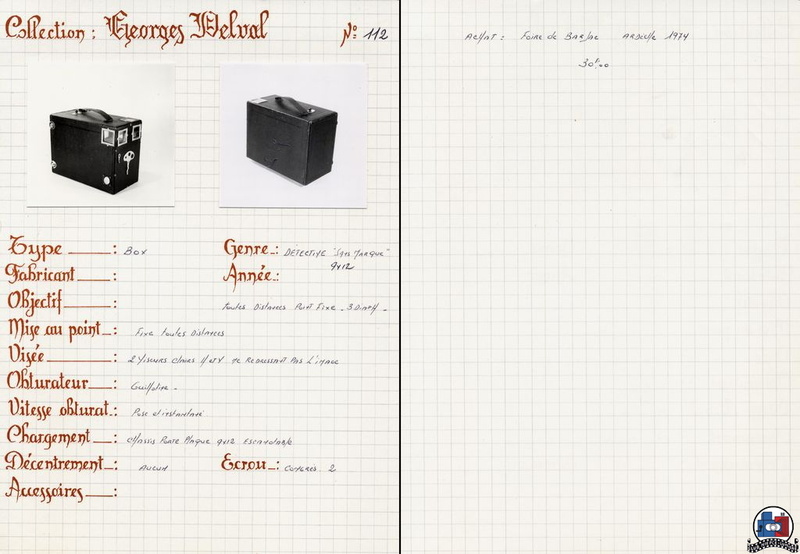 Collection : Georges Delval
N° 112
Type : Box
Genre : DÉTECTIVE "Sans Marque"
9x12
Fabricant :
Année :
Objectif : Toutes Distances Point Fixe - 3 DIAPH -
Mise au point : Fixe toutes Distances
Visée : 2 Viseurs clairs H et V ne Redressant Pas L'image
Obturateur : Guillotine -
Vitesse obturat. : Pose et instantané
Chargement : châssis Porte Plaque 9x12 Escamotable
Décentrement : AUCUN
Ecrou : CONGRÈS. 2
Accessoires :
Achat : Foire de Barjac ARDECHE 1974
30F,00